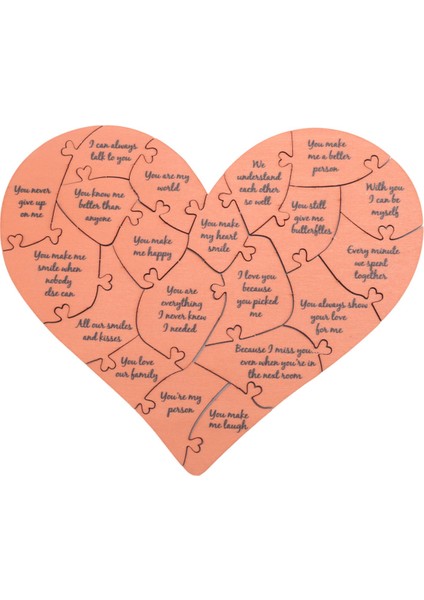 I can always
talk to you
You are my
world
You never
give up
on me
You know me
better than
anyone
You make me
smile when
nobody
else can
You make
me happy
You make
my heart
smile
We
understand
each other
so well
You make
me a better
person
With you
I can be
myself
You still
give me
butterflies
Every minute
we spent
together
You are
everything
I never knew
I needed
I love you
because
you picked
me
You always show
your love
for me
All our smiles
and kisses
You love
our family
Because I miss you...
even when you're in
the next room
You're my
person
You make
me laugh